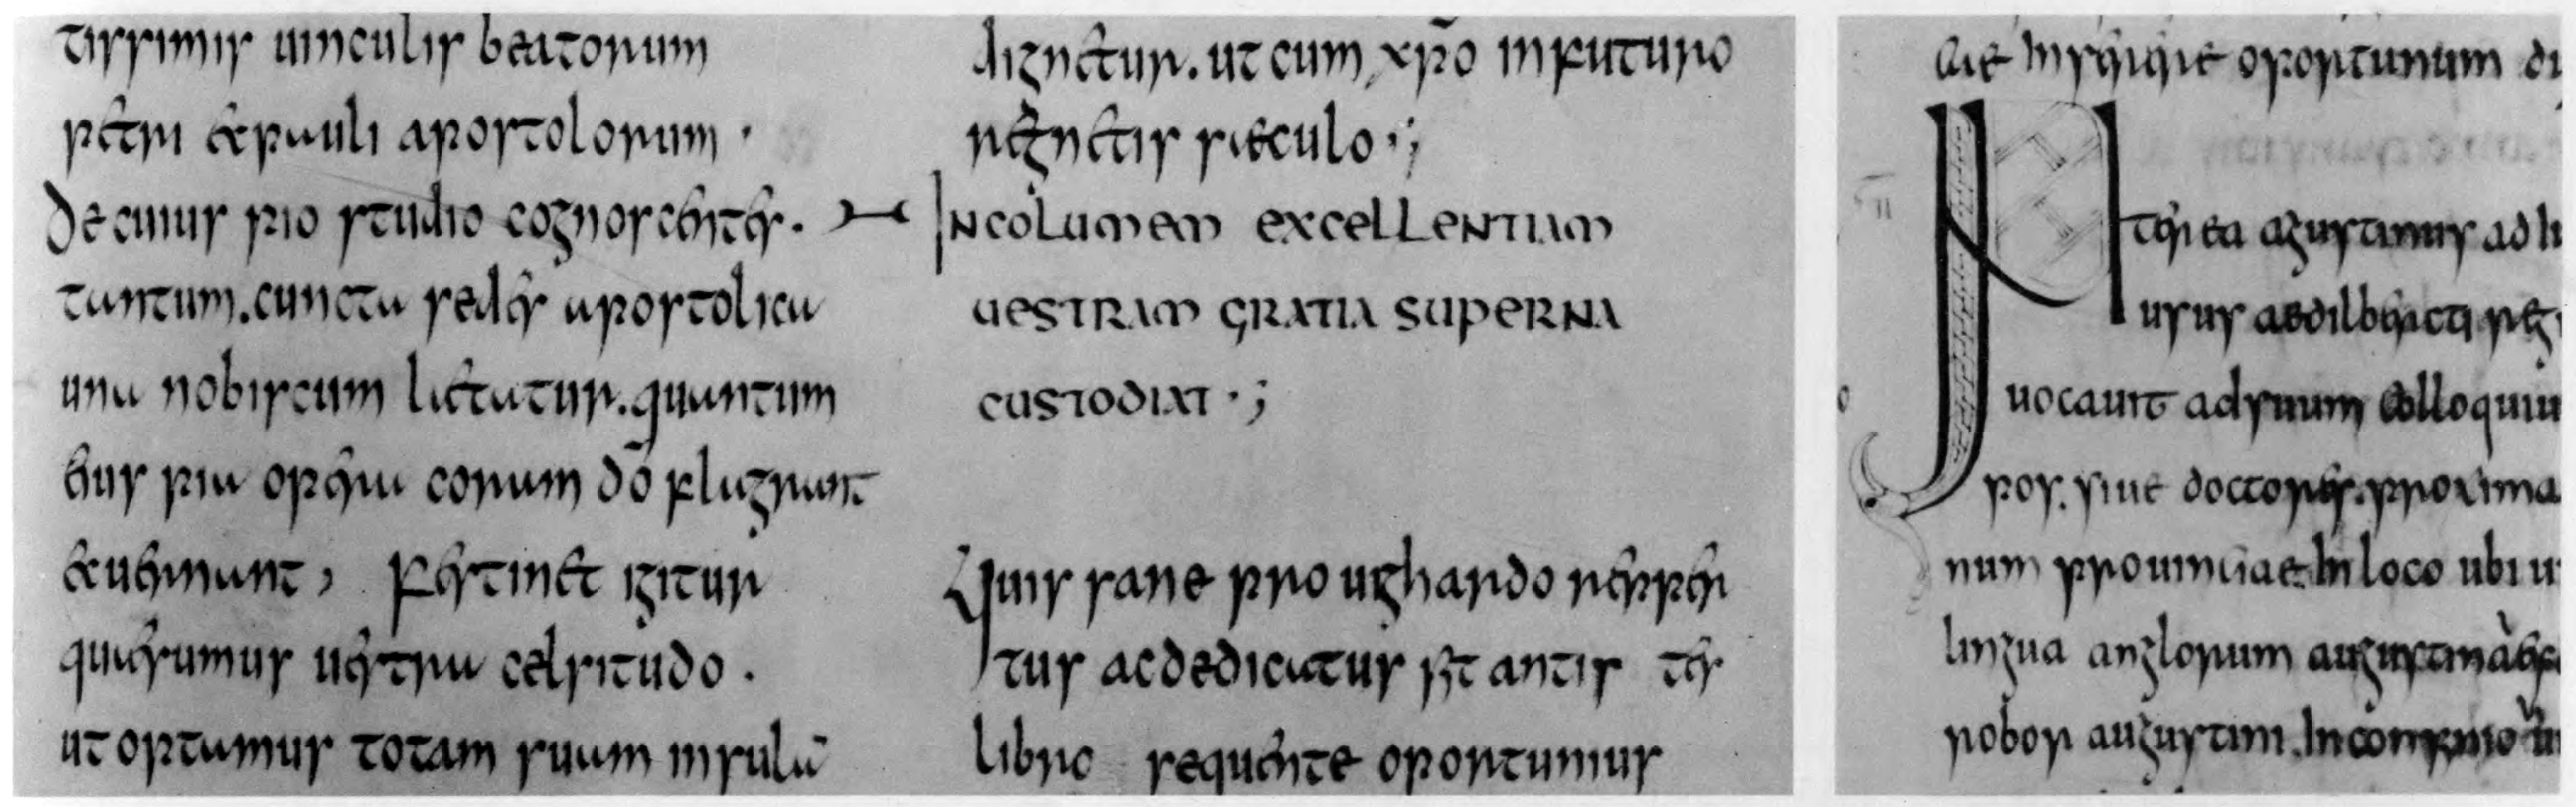 tissimis uinculis beatorum
petri et pauli apostolorum ·
De cuius pio studio cognoscentes.
tantum. cuncta sedes apostolica
una nobiscum laetatur. quantum
eius pia opera coram dō flagrant
et uernant, Festinet igitur
quaesumus uestra celsitudo.
ut optamus totam suam insulā
dignetur. ut cum xp̄o in futuro
regnetis saeculo ·;
INcolumem excellentiam
uestram gratia superna
custodiat ·;
Quis sane pro uighardo repper
tus ac dedicatus sit antis tes
libro sequente oportunius
inserere oportunum
N
terea agustinus ad
usus aedilbercti reg
uocauit ad suum colloquiu
pos. siue doctores. proxima
num prouinciae. In loco ubi u
lingua anglorum augustinaes
robor augustini. In confinio